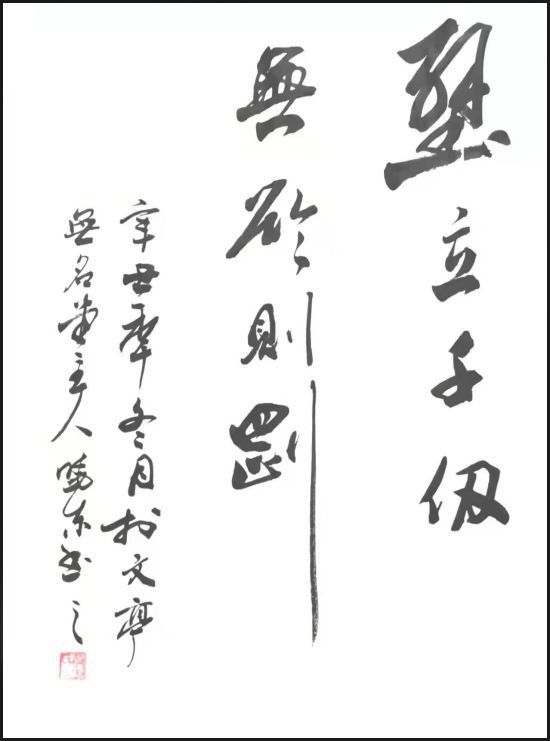 壁立千仞
無欲則剛
辛丑年冬月於文亭
無名堂主人曉東书之